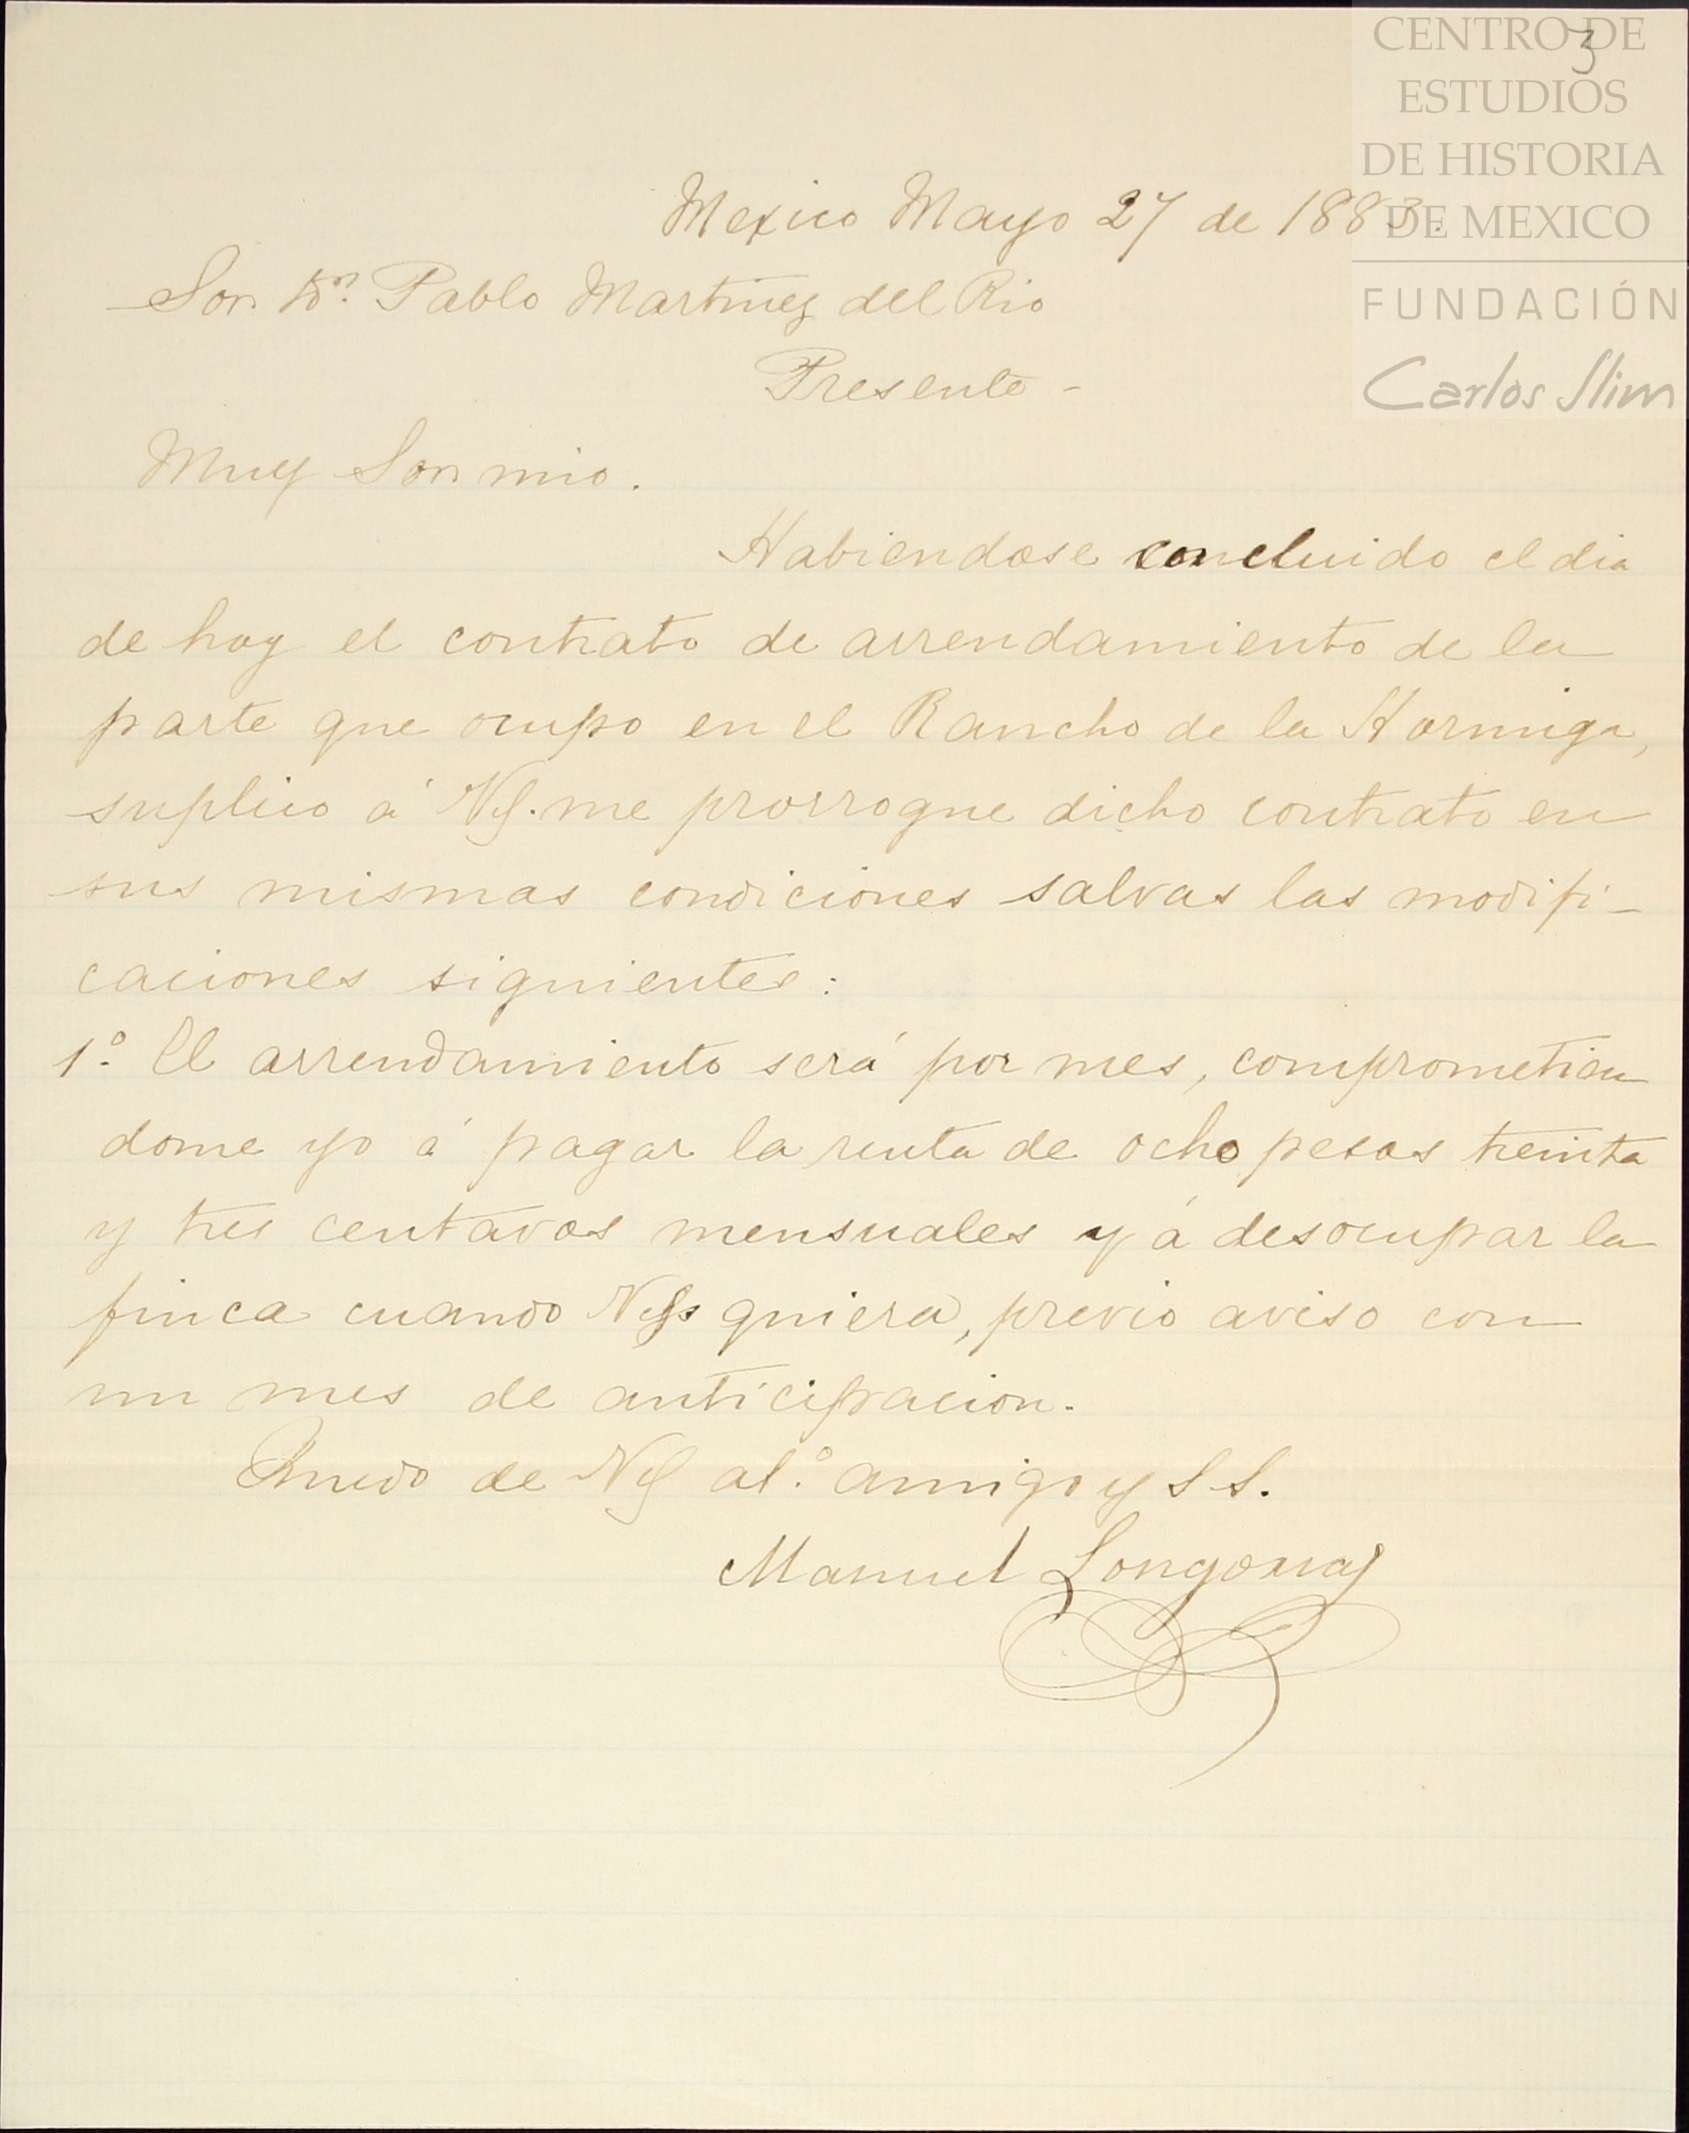 CENTRO DE
ESTUDIOS
DE HISTORIA
DE MEXICO
FUNDACIÓN
Carlos Slim
3
Mexico Mayo 27 de 1883.
Sor. Dn. Pablo Martinez del Rio
Presente -
Muy Sor. mio.
Habiendose concluido el dia
de hoy el contrato de arrendamiento de la
parte que ocupo en el Rancho de la Hormiga,
suplico á Vd. me prorrogue dicho contrato en
sus mismas condiciones salvas las modifi-
caciones siguientes:
1.º El arrendamiento será por mes, comprometien
dome yo á pagar la renta de ocho pesos treinta
y tres centavos mensuales y á desocupar la
finca cuando Vds quiera, previo aviso con
un mes de anticipacion.
Quedo de Vd af.º amigo y S S.
Manuel Longoria